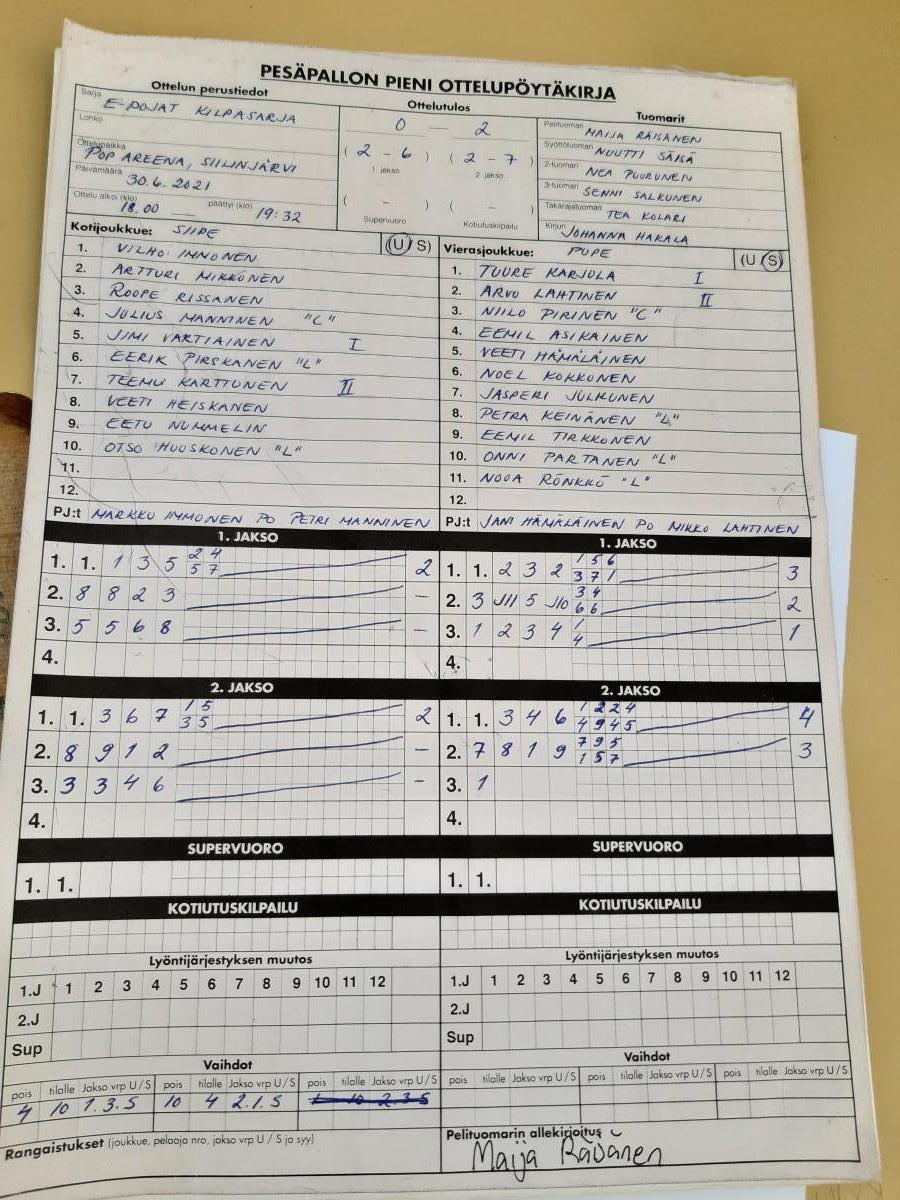 PESÄPALLON PIENI OTTELUPÖYTÄKIRJA
Ottelun perustiedot
Sarja E-POJAT KILPASARJA
Lohko
Ottelupaikka POP AREENA, SIILINJÄRVI
Päivämäärä 30.6.2021
Ottelu alkoi (klo) 18.00 — päättyi (klo) 19:32
Ottelutulos
0 — 2
( 2 - 6 ) ( 2 - 7 )
1. jakso 2. jakso
( - ) ( - )
Supervuoro Kotiutuskilpailu
Tuomarit
Pelituomari MAIJA RÄISÄNEN
Syöttötuomari NUUTTI SÄISÄ
2-tuomari NEA PUURUNEN
3-tuomari SENNI SALKUNEN
Takarajatuomari TEA KOLARI
Kirjuri JOHANNA HAKALA
Kotijoukkue: SIIPE (U / S)
1. VILHO IMMONEN
2. ARTTURI MIKKONEN
3. ROOPE RISSANEN
4. JULIUS MANNINEN "C"
5. JIMI VARTIAINEN I
6. EERIK PIRSKANEN "L"
7. TEEMU KARTTUNEN II
8. VEETI HEISKANEN
9. EETU NUMMELIN
10. OTSO HUUSKONEN "L"
11.
12.
PJ:t MARKKU IMMONEN PO PETRI MANNINEN
Vierasjoukkue: PUPE (U / S)
1. TUURE KARJULA I
2. ARVO LAHTINEN II
3. NIILO PIRINEN "C"
4. EEMIL ASIKAINEN
5. VEETI HÄMÄLÄINEN
6. NOEL KOKKONEN
7. JASPERI JULKUNEN
8. PETRA KEINÄNEN "L"
9. EEMIL TIRKKONEN
10. ONNI PARTANEN "L"
11. NOOA RÖNKKÖ "L"
12.
PJ:t JANI HÄMÄLÄINEN PO MIKKO LAHTINEN
1. JAKSO
2 4
1. 1. 1 3 5 5 7 2
2. 8 8 2 3 —
3. 5 5 6 8 —
4.
1. JAKSO
1 5 6
1. 1. 2 3 2 3 7 1 3
3 4
2. 3 J11 5 J10 6 6 2
1
3. 1 2 3 4 4 1
4.
2. JAKSO
1 5
1. 1. 3 6 7 3 5 2
2. 8 9 1 2 —
3. 3 3 4 6 —
4.
2. JAKSO
1 2 2 4
1. 1. 3 4 6 4 9 4 5 4
7 9 5
2. 7 8 1 9 1 5 7 3
3. 1
4.
SUPERVUORO
1. 1.
SUPERVUORO
1. 1.
KOTIUTUSKILPAILU
KOTIUTUSKILPAILU
Lyöntijärjestyksen muutos
1.J 1 2 3 4 5 6 7 8 9 10 11 12
2.J
Sup
Lyöntijärjestyksen muutos
1.J 1 2 3 4 5 6 7 8 9 10 11 12
2.J
Sup
Vaihdot
pois tilalle Jakso vrp U / S pois tilalle Jakso vrp U / S pois tilalle Jakso vrp U / S
4 10 1.3.S 10 4 2.1.S
Vaihdot
pois tilalle Jakso vrp U / S pois tilalle Jakso vrp U / S pois tilalle Jakso vrp U / S
Rangaistukset (joukkue, pelaaja nro, jakso vrp U / S ja syy)
Pelituomarin allekirjoitus
Maija Räisänen